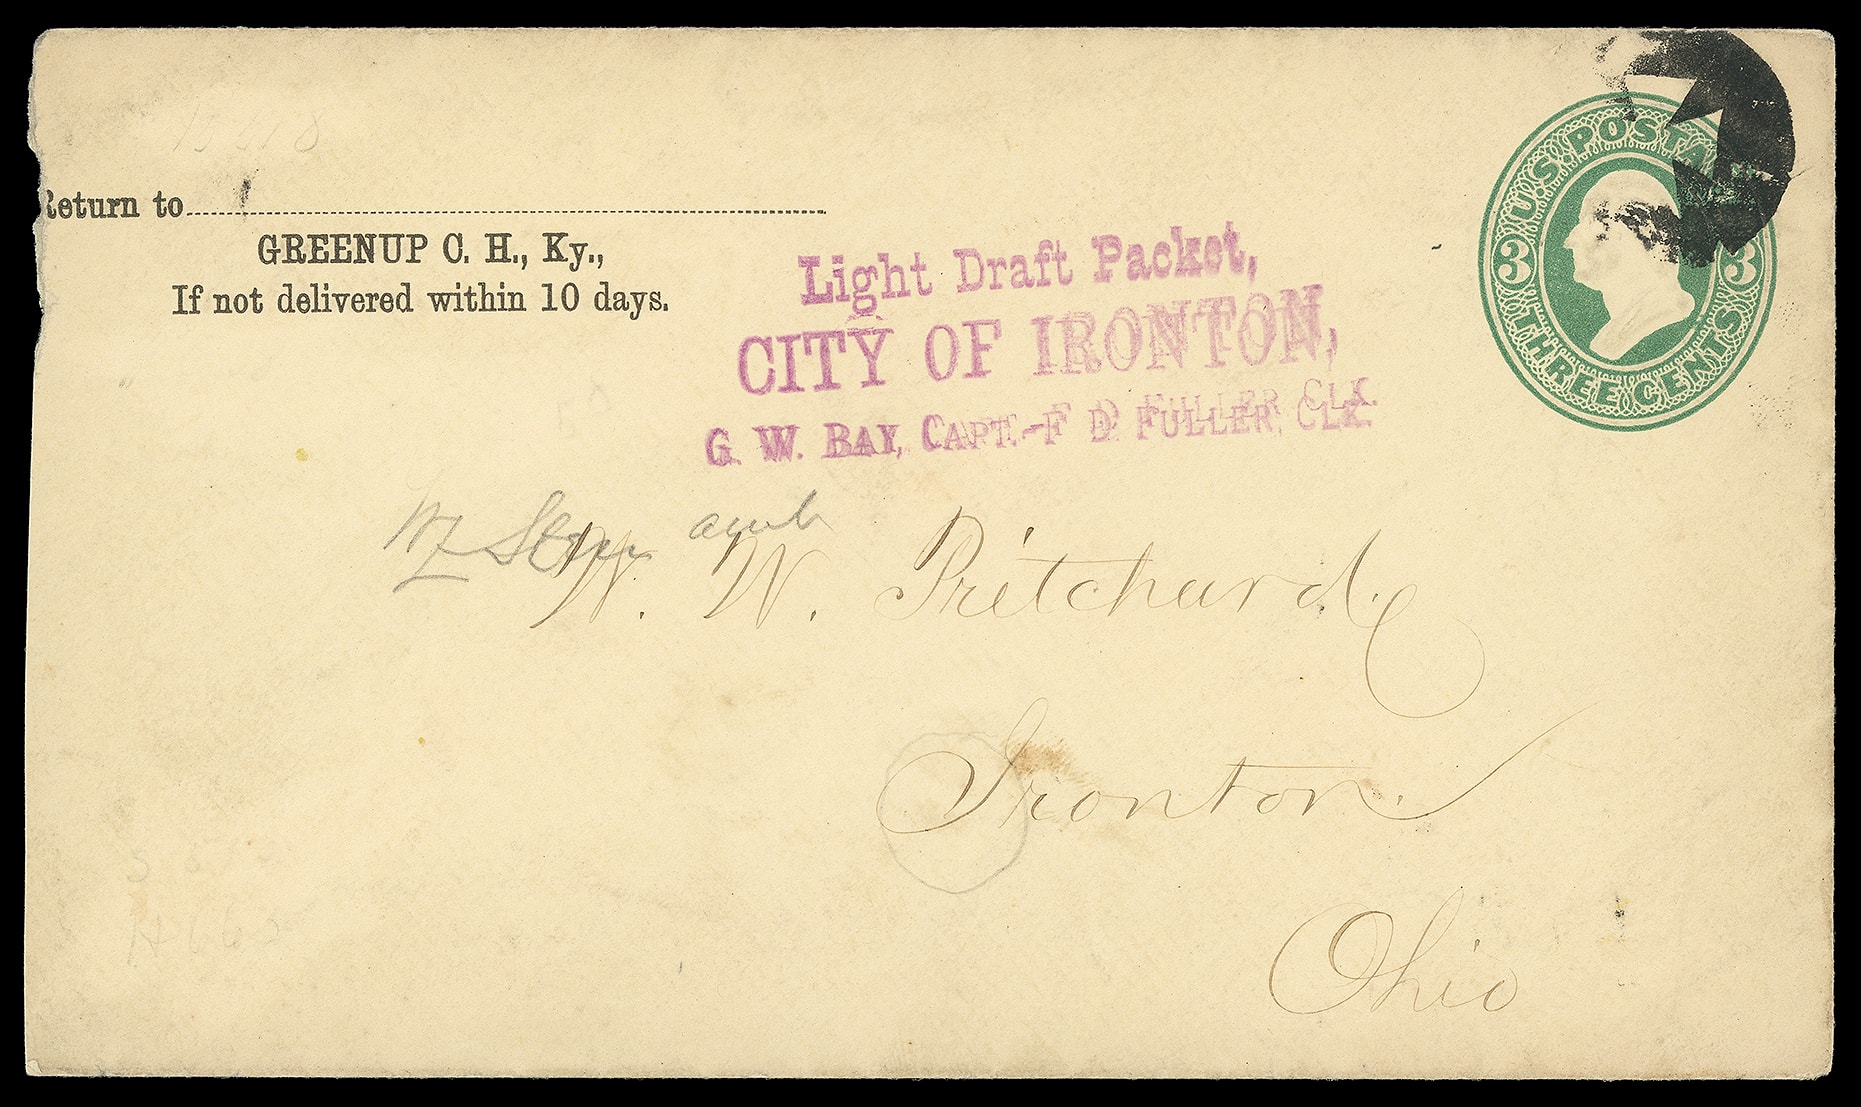 Return to
GREENUP C. H., Ky.,
If not delivered within 10 days.
Light Draft Packet,
CITY OF IRONTON,
G. W. BAY, CAPT.-F D. FULLER, CLK.
U.S. POSTAGE
3 3
THREE CENTS
W. W. Pritchard.
Ironton.
Ohio